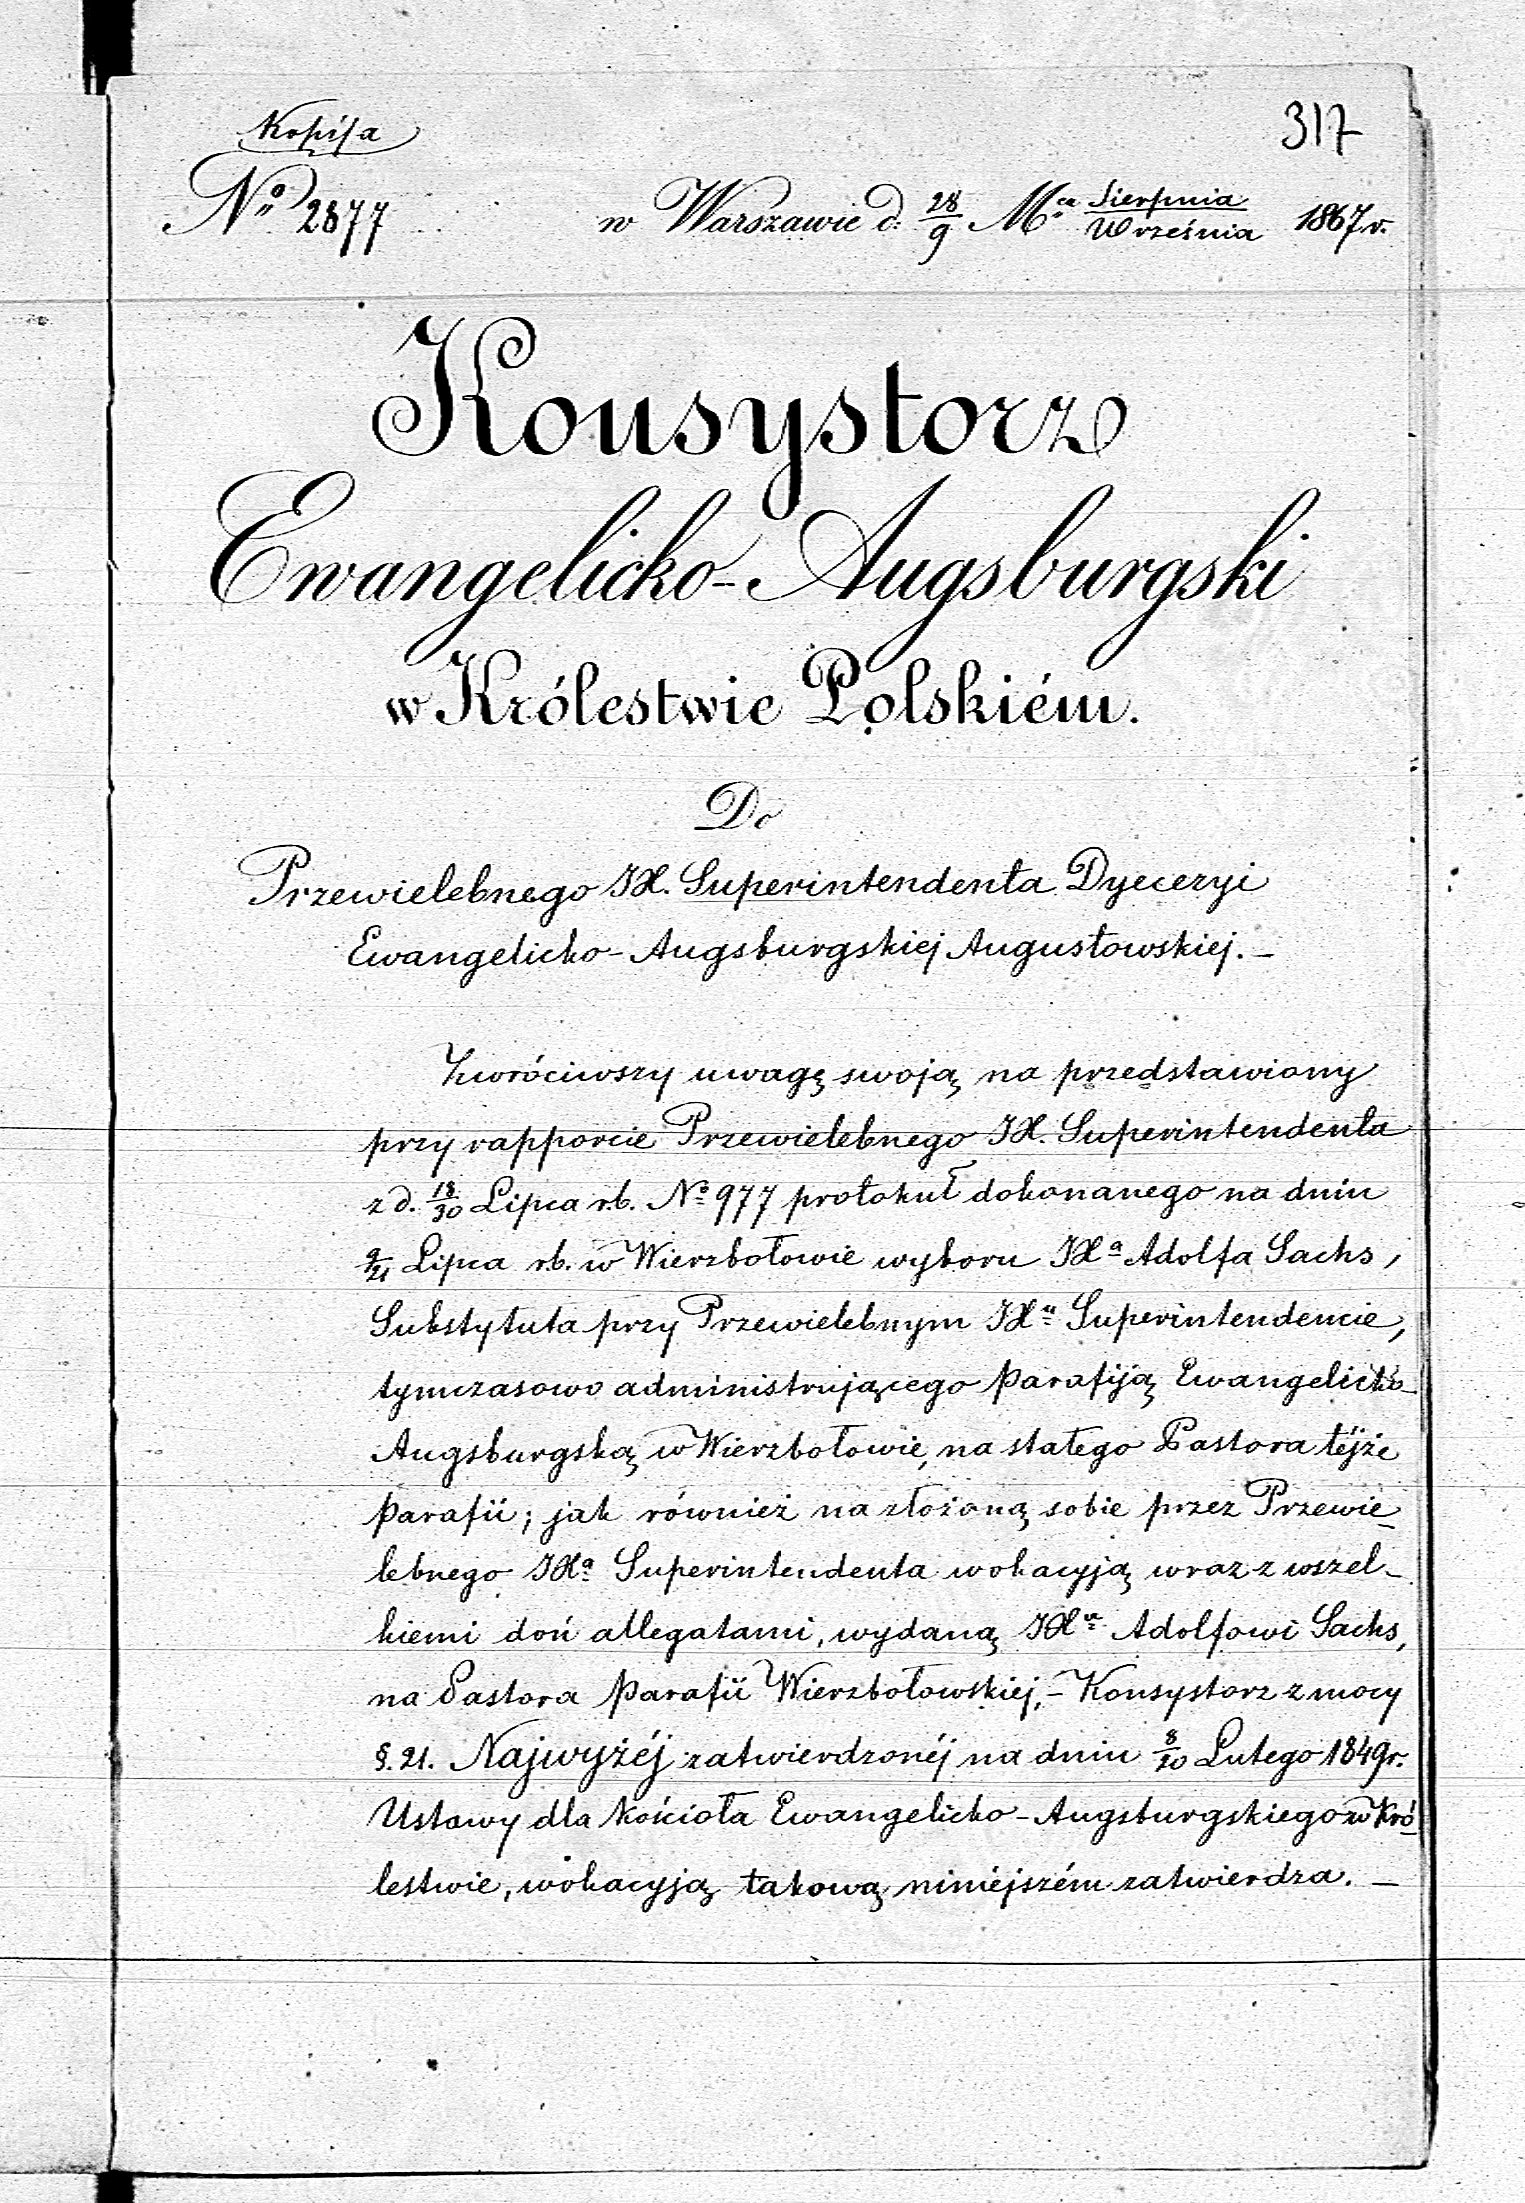 Kopija
317
Nº 2877
w Warszawie d. 28/9 Mca Sierpnia/Września 1867 r.
Konsystorz
Ewangelicko-Augsburgski
w Królestwie Polskiém.
Do
Przewielebnego JX. Superintendenta Dyecezyi
Ewangelicko-Augsburgskiej Augustowskiej. –
Zwróciwszy uwagę swoją na przedstawiony
przy rapporcie Przewielebnego JX. Superintendenta
z d. 18/30 Lipca r.b. Nº 977 protokuł dokonanego na dniu
9/21 Lipca r.b. w Wierzbołowie wyboru JXa Adolfa Sachs,
Substytuta przy Przewielebnym JXu Superintendencie,
tymczasowo administrującego Parafiją Ewangelicko-
Augsburgską w Wierzbołowie, na stałego Pastora téjże
Parafii; jak również na złożoną sobie przez Przewie-
lebnego JXa Superintendenta wokacyją wraz z wszel-
kiemi doń allegatami, wydaną JXu Adolfowi Sachs,
na Pastora Parafii Wierzbołowskiej, – Konsystorz z mocy
§. 21. Najwyżéj zatwierdzonéj na dniu 8/20 Lutego 1849 r.
Ustawy dla Kościoła Ewangelicko-Augsburgskiego w Kró-
lestwie, wokacyją takową niniéjszém zatwierdza. –